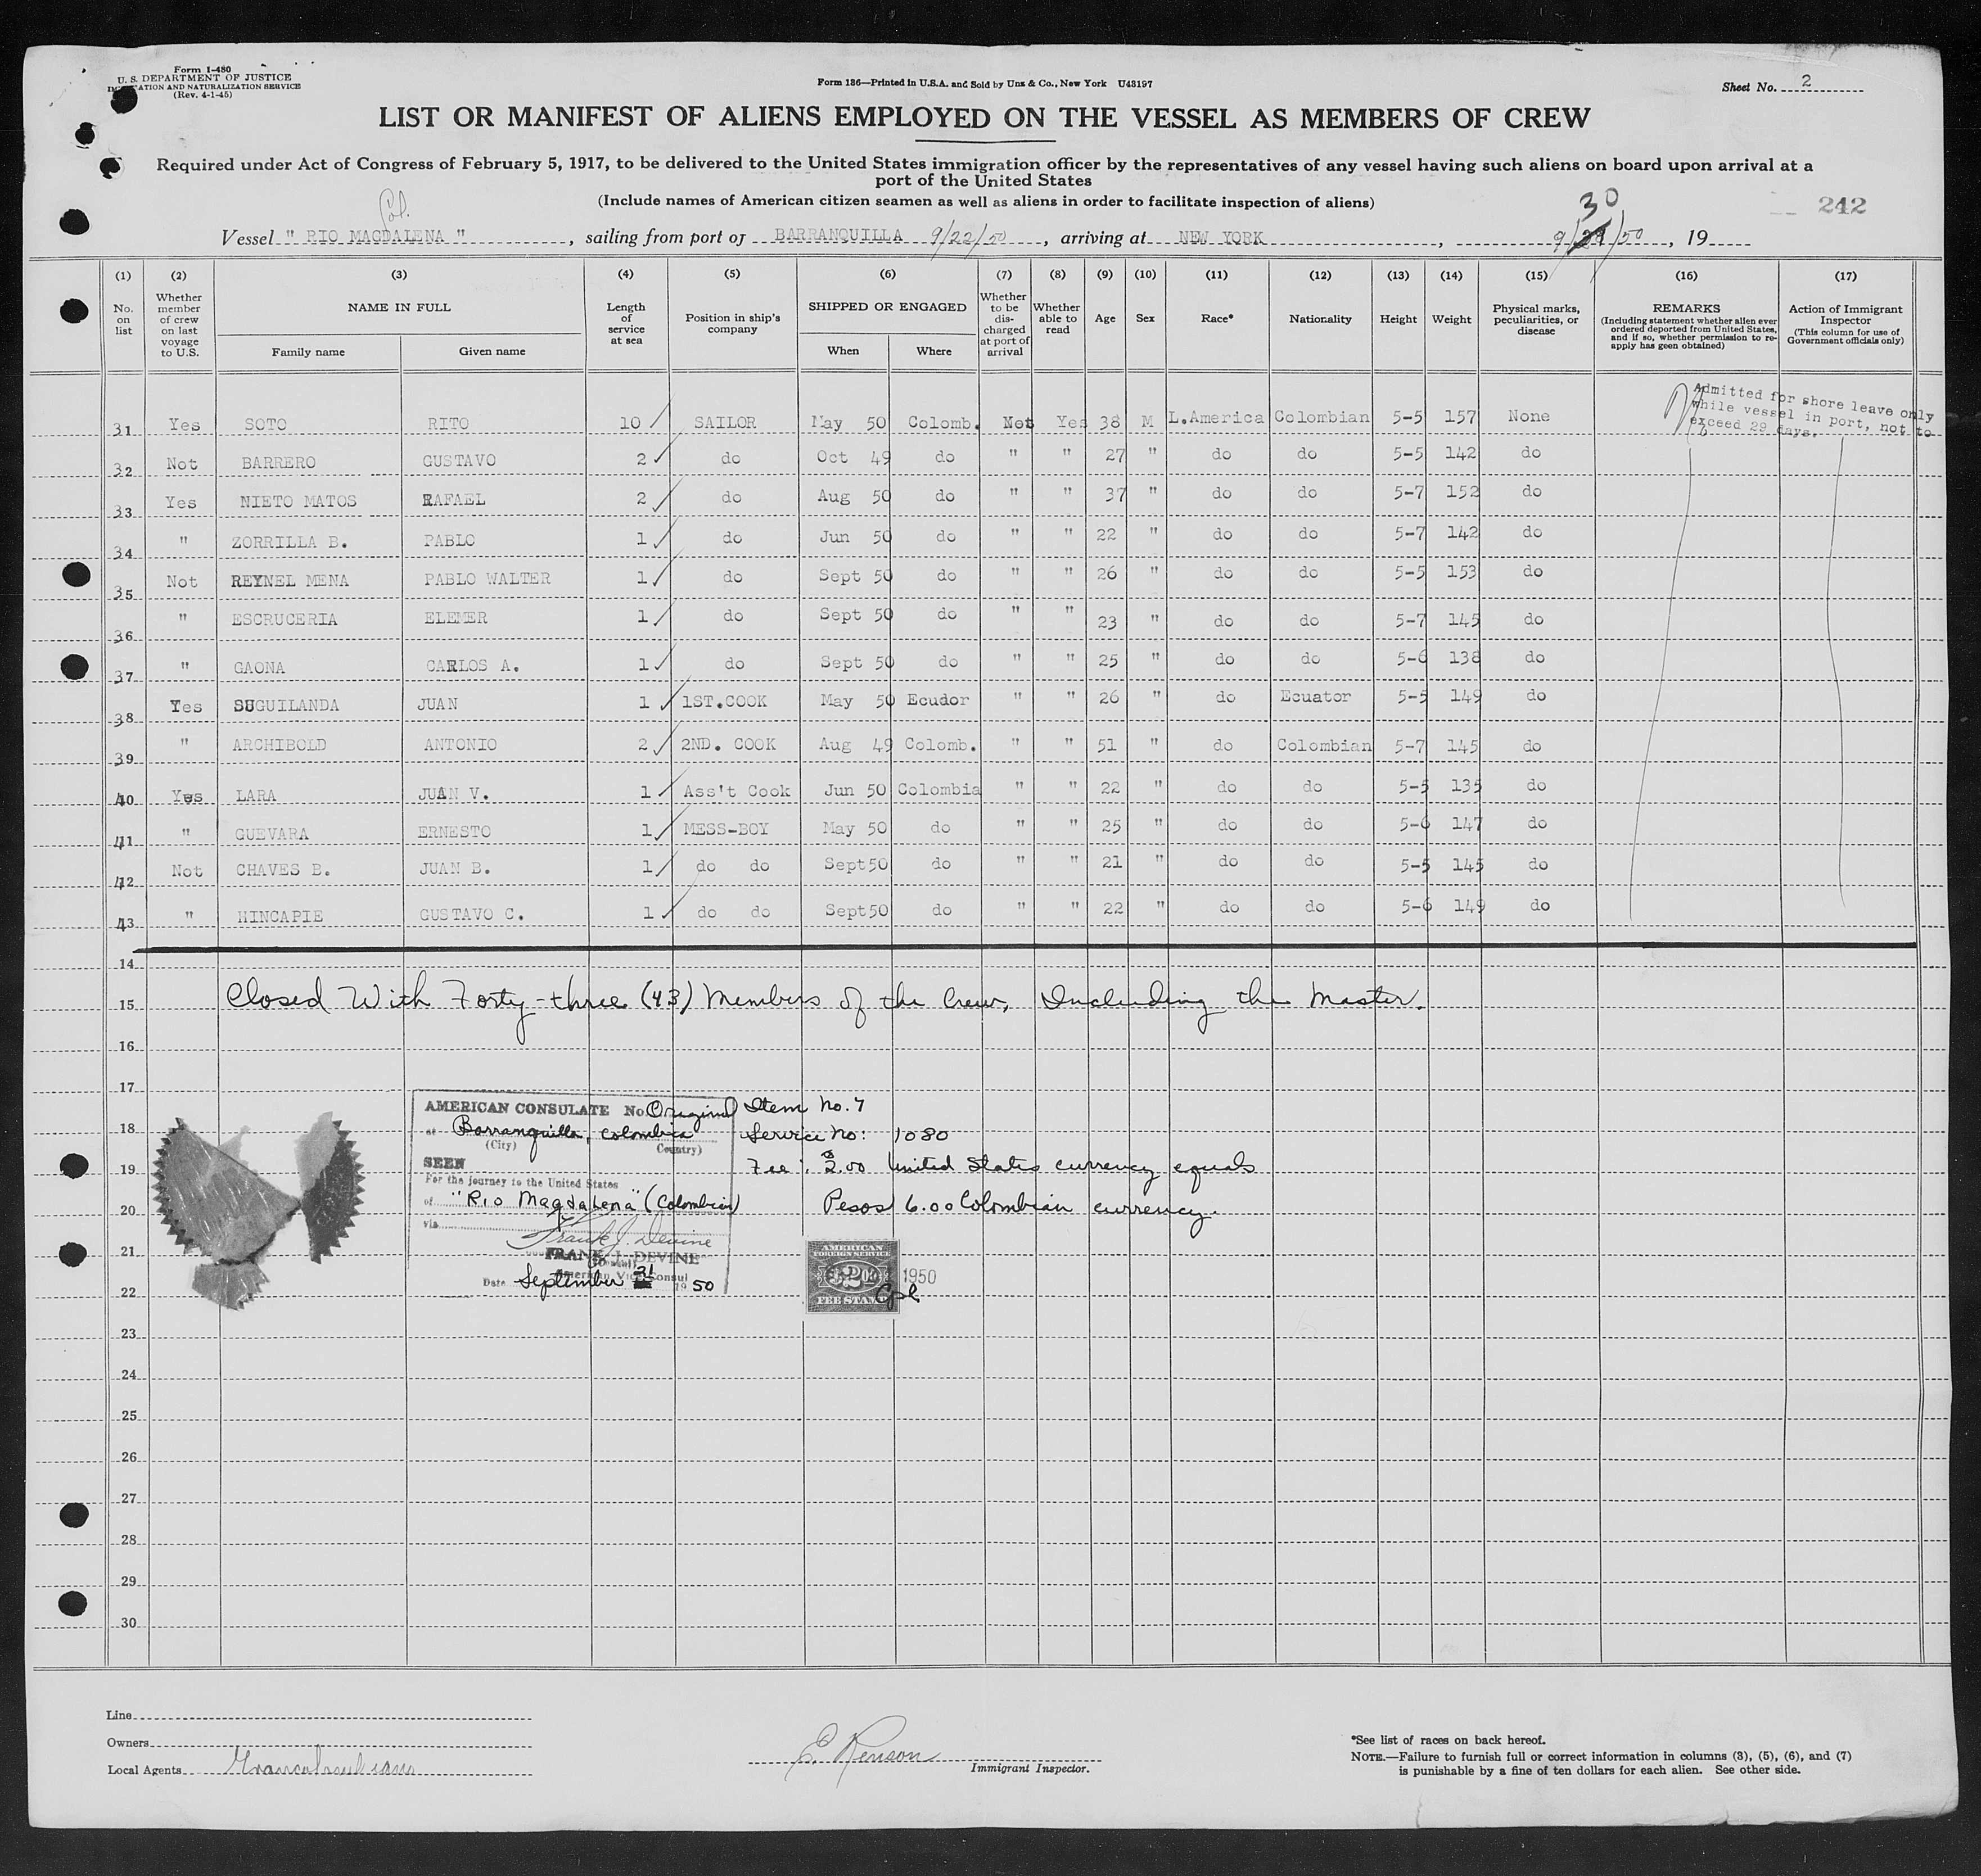 Form I-480
U. S. DEPARTMENT OF JUSTICE
ATION AND NATURALIZATION SERVICE
(Rev. 4-1-45)
Form 186—Printed in U.S.A. and Sold by Unz & Co., New York U43197
Sheet No. 2
LIST OR MANIFEST OF ALIENS EMPLOYED ON THE VESSEL AS MEMBERS OF CREW
Required under Act of Congress of February 5, 1917, to be delivered to the United States immigration officer by the representatives of any vessel having such aliens on board upon arrival at a
port of the United States
(Include names of American citizen seamen as well as aliens in order to facilitate inspection of aliens)
242
Col.
30
Vessel " RIO MAGDALENA ", sailing from port of BARRANQUILLA 9/22/50, arriving at NEW YORK, 9/ /50, 19
(1) (2) (3) (4) (5) (6) (7) (8) (9) (10) (11) (12) (13) (14) (15) (16) (17)
No. on list
Whether member of crew on last voyage to U.S.
NAME IN FULL
Family name Given name
Length of service at sea
Position in ship's company
SHIPPED OR ENGAGED
When Where
Whether to be discharged at port of arrival
Whether able to read
Age
Sex
Race*
Nationality
Height
Weight
Physical marks, peculiarities, or disease
REMARKS
(Including statement whether alien ever ordered deported from United States, and if so, whether permission to re-apply has geen obtained)
Action of Immigrant Inspector
(This column for use of Government officials only)
Admitted for shore leave only
while vessel in port, not to
exceed 29 days.
31 Yes SOTO RITO 10 SAILOR May 50 Colomb. Not Yes 38 M L.America Colombian 5-5 157 None
32 Not BARRERO GUSTAVO 2 do Oct 49 do " " 27 " do do 5-5 142 do
33 Yes NIETO MATOS RAFAEL 2 do Aug 50 do " " 37 " do do 5-7 152 do
34 " ZORRILLA B. PABLO 1 do Jun 50 do " " 22 " do do 5-7 142 do
35 Not REYNEL MENA PABLO WALTER 1 do Sept 50 do " " 26 " do do 5-5 153 do
36 " ESCRUCERIA ELEMER 1 do Sept 50 do " " 23 " do do 5-7 145 do
37 " GAONA CARLOS A. 1 do Sept 50 do " " 25 " do do 5-6 138 do
38 Yes SUGUILANDA JUAN 1 1ST.COOK May 50 Ecudor " " 26 " do Ecuator 5-5 149 do
39 " ARCHIBOLD ANTONIO 2 2ND. COOK Aug 49 Colomb. " " 51 " do Colombian 5-7 145 do
40 Yes LARA JUAN V. 1 Ass't Cook Jun 50 Colombia " " 22 " do do 5-5 135 do
41 " GUEVARA ERNESTO 1 MESS-BOY May 50 do " " 25 " do do 5-6 147 do
42 Not CHAVES B. JUAN B. 1 do do Sept 50 do " " 21 " do do 5-5 145 do
43 " HINCAPIE GUSTAVO C. 1 do do Sept 50 do " " 22 " do do 5-6 149 do
14
15 Closed With Forty-three (43) Members of the Crew, Including the Master.
16
17
AMERICAN CONSULATE No. Original Item No. 7
18 at Barranquilla, Colombia Service No: 1080
(City) Country)
19 SEEN Fee: $2.00 United States currency equals
For the journey to the United States
20 of "Rio Magdalena" (Colombian) Pesos 6.00 Colombian currency.
via
Frank J. Devine
21 FRANK J. DEVINE
American Vice Consul
Date September 21 1950
22
AMERICAN
FOREIGN SERVICE
$2.00 1950
FEE STAMP
23
24
25
26
27
28
29
30
Line
Owners
Local Agents
E. Renson
Immigrant Inspector.
*See list of races on back hereof.
NOTE.—Failure to furnish full or correct information in columns (3), (5), (6), and (7)
is punishable by a fine of ten dollars for each alien. See other side.